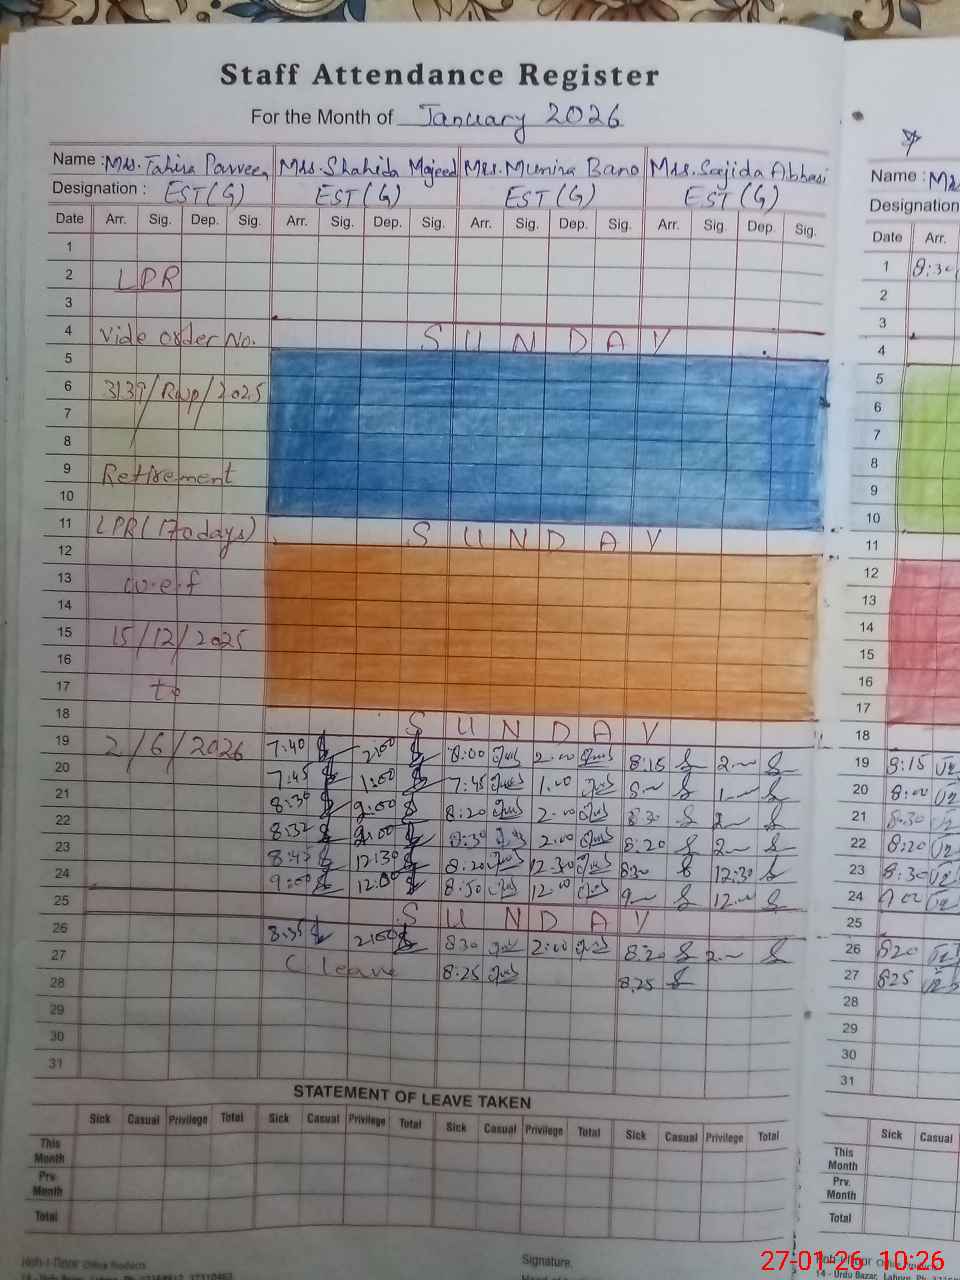 Staff Attendance Register
For the Month of January 2026
Name : Mrs. Tahira Parveen Mrs. Shahida Majeed Mrs. Munira Bano Mrs. Sajida Abbasi
Designation : EST (G) EST (G) EST (G) EST (G)
Date Arr. Sig. Dep. Sig. Arr. Sig. Dep. Sig. Arr. Sig. Dep. Sig. Arr. Sig. Dep. Sig.
1
2 LPR
3
4 Vide order No. S U N D A Y
5
6 3139/Rwp/2025
7
8
9 Retirement
10
11 LPR (170 days) S U N D A Y
12
13 w.e.f
14
15 15/12/2025
16
17 to
18 S U N D A Y
19 2/6/2026 7:40 2:00 8:00 2:00 8:15 2
20 7:45 1:00 7:45 1:00 8 1
21 8:30 2:00 8:20 2:00 8:30 2
22 8:32 2:00 8:30 2:00 8:20 2
23 8:45 12:30 8:20 12:30 830 12:30
24 9:00 12:00 8:50 12:00 9 12
25 S U N D A Y
26 8:35 2:00 830 2:00 8:20 2
27 C leave 8:25 8:25
28
29
30
31
STATEMENT OF LEAVE TAKEN
Sick Casual Privilege Total Sick Casual Privilege Total Sick Casual Privilege Total Sick Casual Privilege Total
This Month
Prv. Month
Total
Signature
Name :
Designation
Date Arr.
1 8:30
2
3
4
5
6
7
8
9
10
11
12
13
14
15
16
17
18
19 8:15
20 8:00
21 8:30
22 8:20
23 8:30
24 9:00
25
26 820
27 825
28
29
30
31
Sick Casual
This Month
Prv. Month
Total
14 - Urdu Bazar, Lahore
27-01-26 10:26